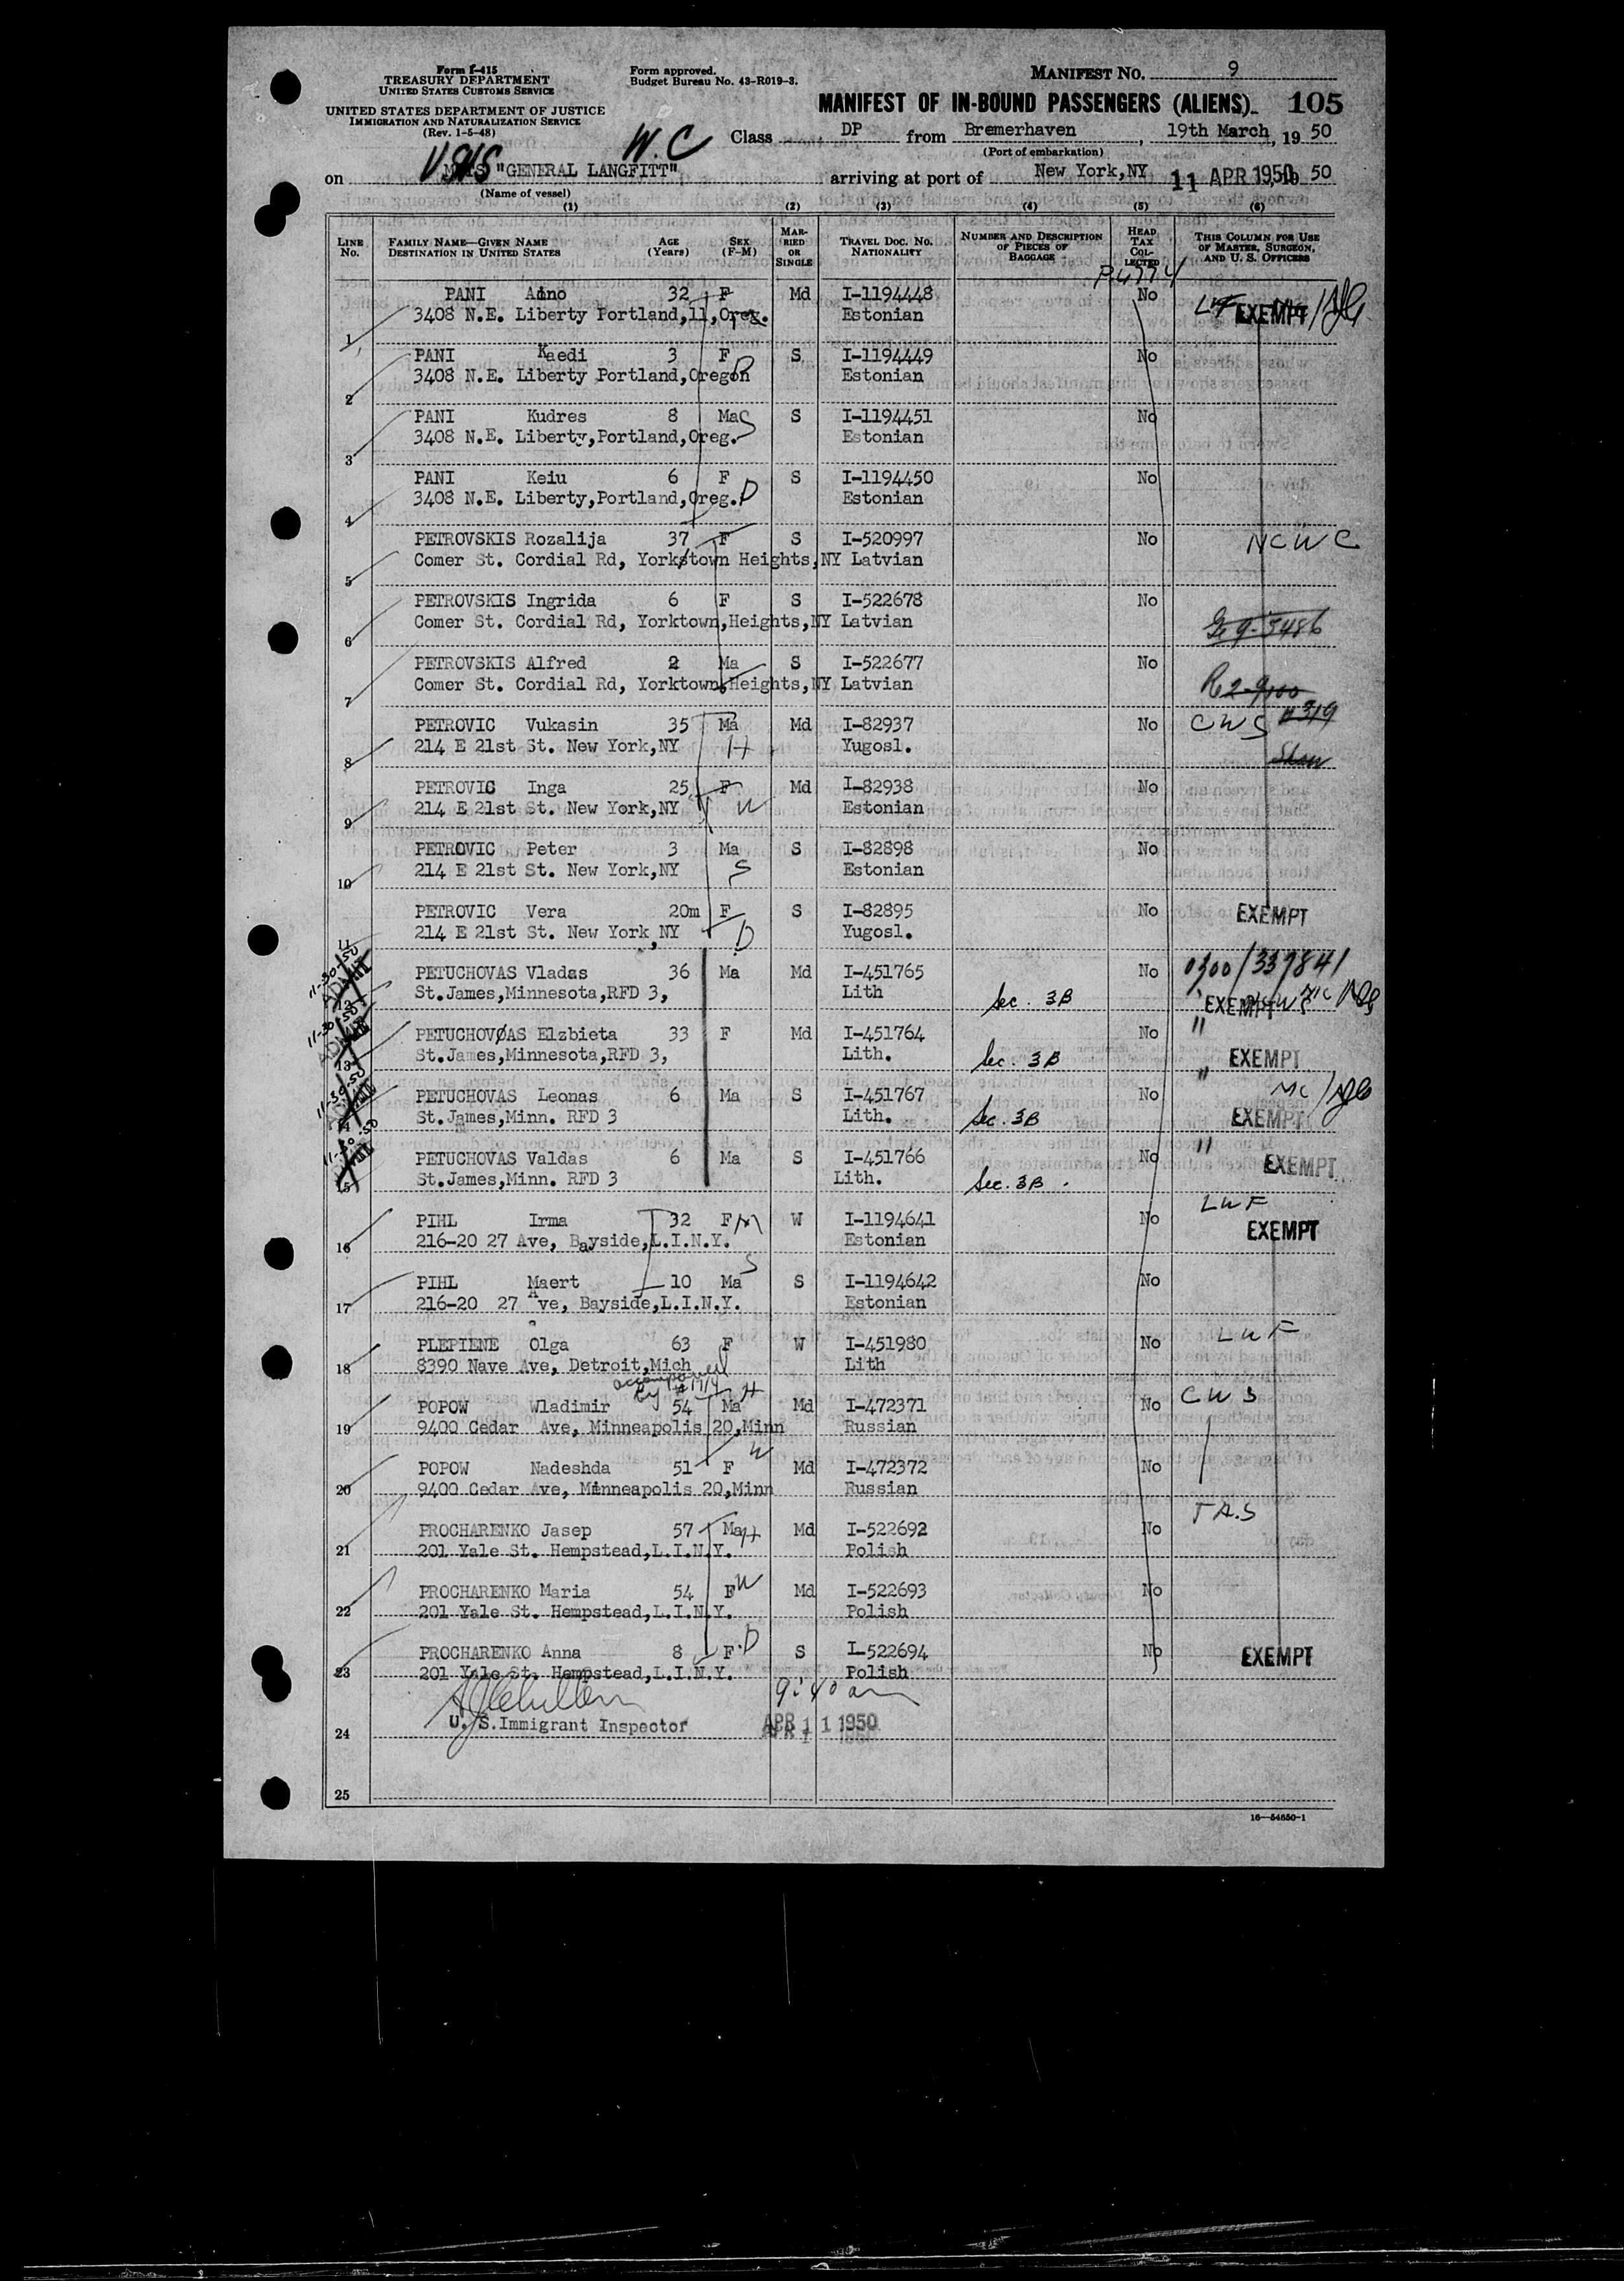 Form I-415
TREASURY DEPARTMENT
UNITED STATES CUSTOMS SERVICE
Form approved.
Budget Bureau No. 43-R019-3.
MANIFEST NO. 9
UNITED STATES DEPARTMENT OF JUSTICE
IMMIGRATION AND NATURALIZATION SERVICE
(Rev. 1-5-48)
MANIFEST OF IN-BOUND PASSENGERS (ALIENS) 105
W.C
Class DP from Bremerhaven, 19th March, 19 50
(Port of embarkation)
on "GENERAL LANGFITT" arriving at port of New York,NY 11 APR 1950, 19 50
(Name of vessel)
(1) (2) (3) (4) (5) (6)
LINE No. FAMILY NAME—GIVEN NAME DESTINATION IN UNITED STATES AGE (Years) SEX (F-M) MARRIED OR SINGLE TRAVEL DOC. NO. NATIONALITY NUMBER AND DESCRIPTION OF PIECES OF BAGGAGE HEAD TAX COLLECTED THIS COLUMN FOR USE OF MASTER, SURGEON, AND U. S. OFFICERS
PANI Aino 32 F Md I-1194448 No EXEMPT
1 3408 N.E. Liberty Portland,11,Oreg. Estonian
PANI Kaedi 3 F S I-1194449 No
2 3408 N.E. Liberty Portland,Oregon Estonian
PANI Kudres 8 Ma S I-1194451 No
3 3408 N.E. Liberty,Portland,Oreg. Estonian
PANI Keiu 6 F S I-1194450 No
4 3408 N.E. Liberty,Portland,Oreg. D Estonian
PETROVSKIS Rozalija 37 F S I-520997 No NCWC
5 Comer St. Cordial Rd, Yorkstown Heights,NY Latvian
PETROVSKIS Ingrida 6 F S I-522678 No
6 Comer St. Cordial Rd, Yorktown,Heights,NY Latvian
PETROVSKIS Alfred 2 Ma S I-522677 No
7 Comer St. Cordial Rd, Yorktown,Heights,NY Latvian
PETROVIC Vukasin 35 Ma Md I-82937 No CWS
8 214 E 21st St. New York,NY H Yugosl.
PETROVIC Inga 25 F Md I-82938 No
9 214 E 21st St. New York,NY W Estonian
PETROVIC Peter 3 Ma S I-82898 No
10 214 E 21st St. New York,NY S Estonian
PETROVIC Vera 20m F S I-82895 No EXEMPT
11 214 E 21st St. New York,NY D Yugosl.
PETUCHOVAS Vladas 36 Ma Md I-451765 No 0300/339841
12 St.James,Minnesota,RFD 3, Lith Sec. 3B EXEMPT
PETUCHOVAS Elzbieta 33 F Md I-451764 No "
13 St.James,Minnesota,RFD 3, Lith. Sec. 3B EXEMPT
PETUCHOVAS Leonas 6 Ma S I-451767 No "
14 St.James,Minn. RFD 3 Lith. Sec. 3B EXEMPT
PETUCHOVAS Valdas 6 Ma S I-451766 No "
15 St.James,Minn. RFD 3 Lith. Sec. 3B. EXEMPT
PIHL Irma 32 F M W I-1194641 No LWF
16 216-20 27 Ave, Bayside,L.I.N.Y. Estonian EXEMPT
PIHL Maert 10 Ma S S I-1194642 No
17 216-20 27 Ave, Bayside,L.I.N.Y. Estonian
PLEPIENE Olga 63 F W I-451980 No LWF
18 8390 Nave Ave, Detroit,Mich Lith
accompanied
POPOW Wladimir 54 Ma H Md I-472371 No CWS
19 9400 Cedar Ave, Minneapolis 20,Minn Russian
POPOW Nadeshda 51 F W Md I-472372 No
20 9400 Cedar Ave, Minneapolis 20,Minn Russian
PROCHARENKO Jasep 57 Ma H Md I-522692 No
21 201 Yale St. Hempstead,L.I.N.Y. Polish
PROCHARENKO Maria 54 F W Md I-522693 No
22 201 Yale St. Hempstead,L.I.N.Y. Polish
PROCHARENKO Anna 8 F D S I-522694 No EXEMPT
23 201 Yale St. Hempstead,L.I.N.Y. Polish
9:40 am
U. S.Immigrant Inspector APR 11 1950
24
25
16—54650-1